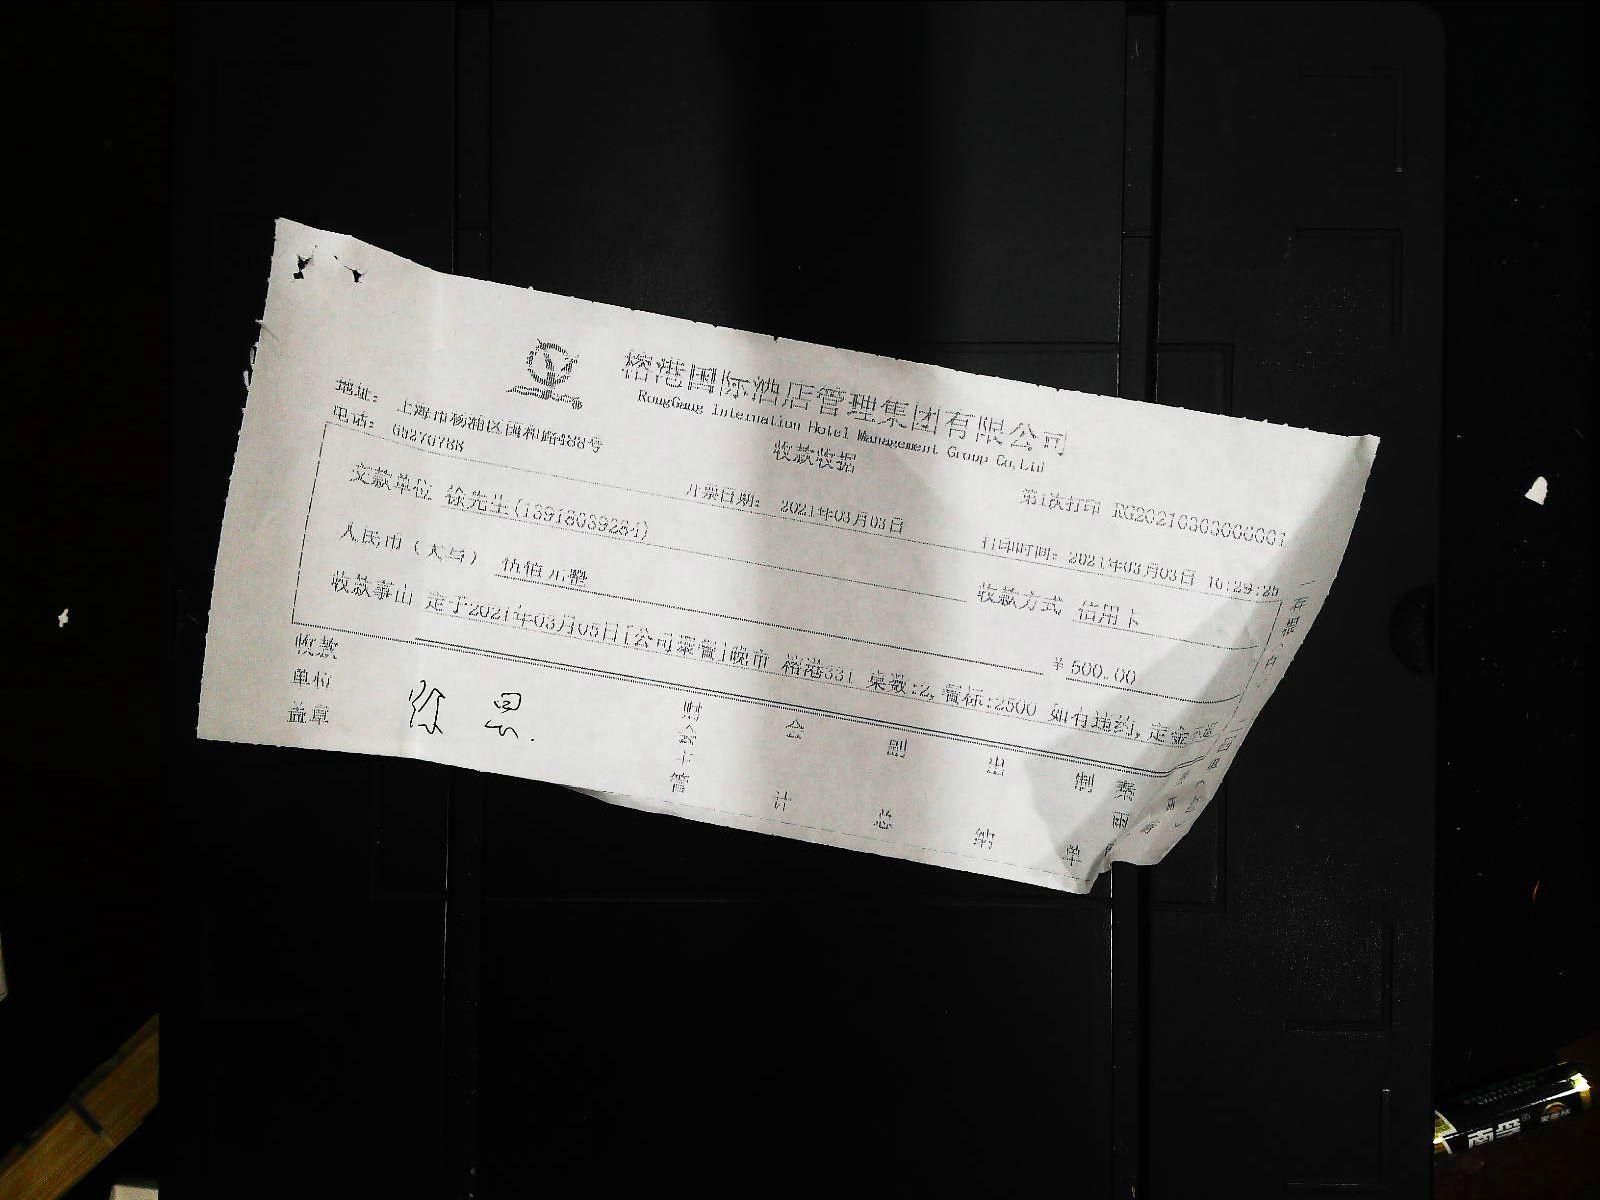 榕港国际酒店管理集团有限公司
RongGang Internation Hotel Management Group Co,Ltd
地址: 上海市杨浦区国和路488号
收款收据
电话: 65276788
第1次打印 RG20210303000001
开票日期: 2021年03月03日
打印时间: 2021年03月03日 16:29:25
交款单位 徐先生(13918039284)
收款方式 信用卡
人民币(大写) 伍佰元整
¥ 500.00
收款事由 定于2021年03月05日[公司聚餐]晚市 榕港331 桌数:2, 餐标:2500 如有违约, 定金不
收款
单位
盖章
财会主管
会计
副总
出纳
制单
一存根